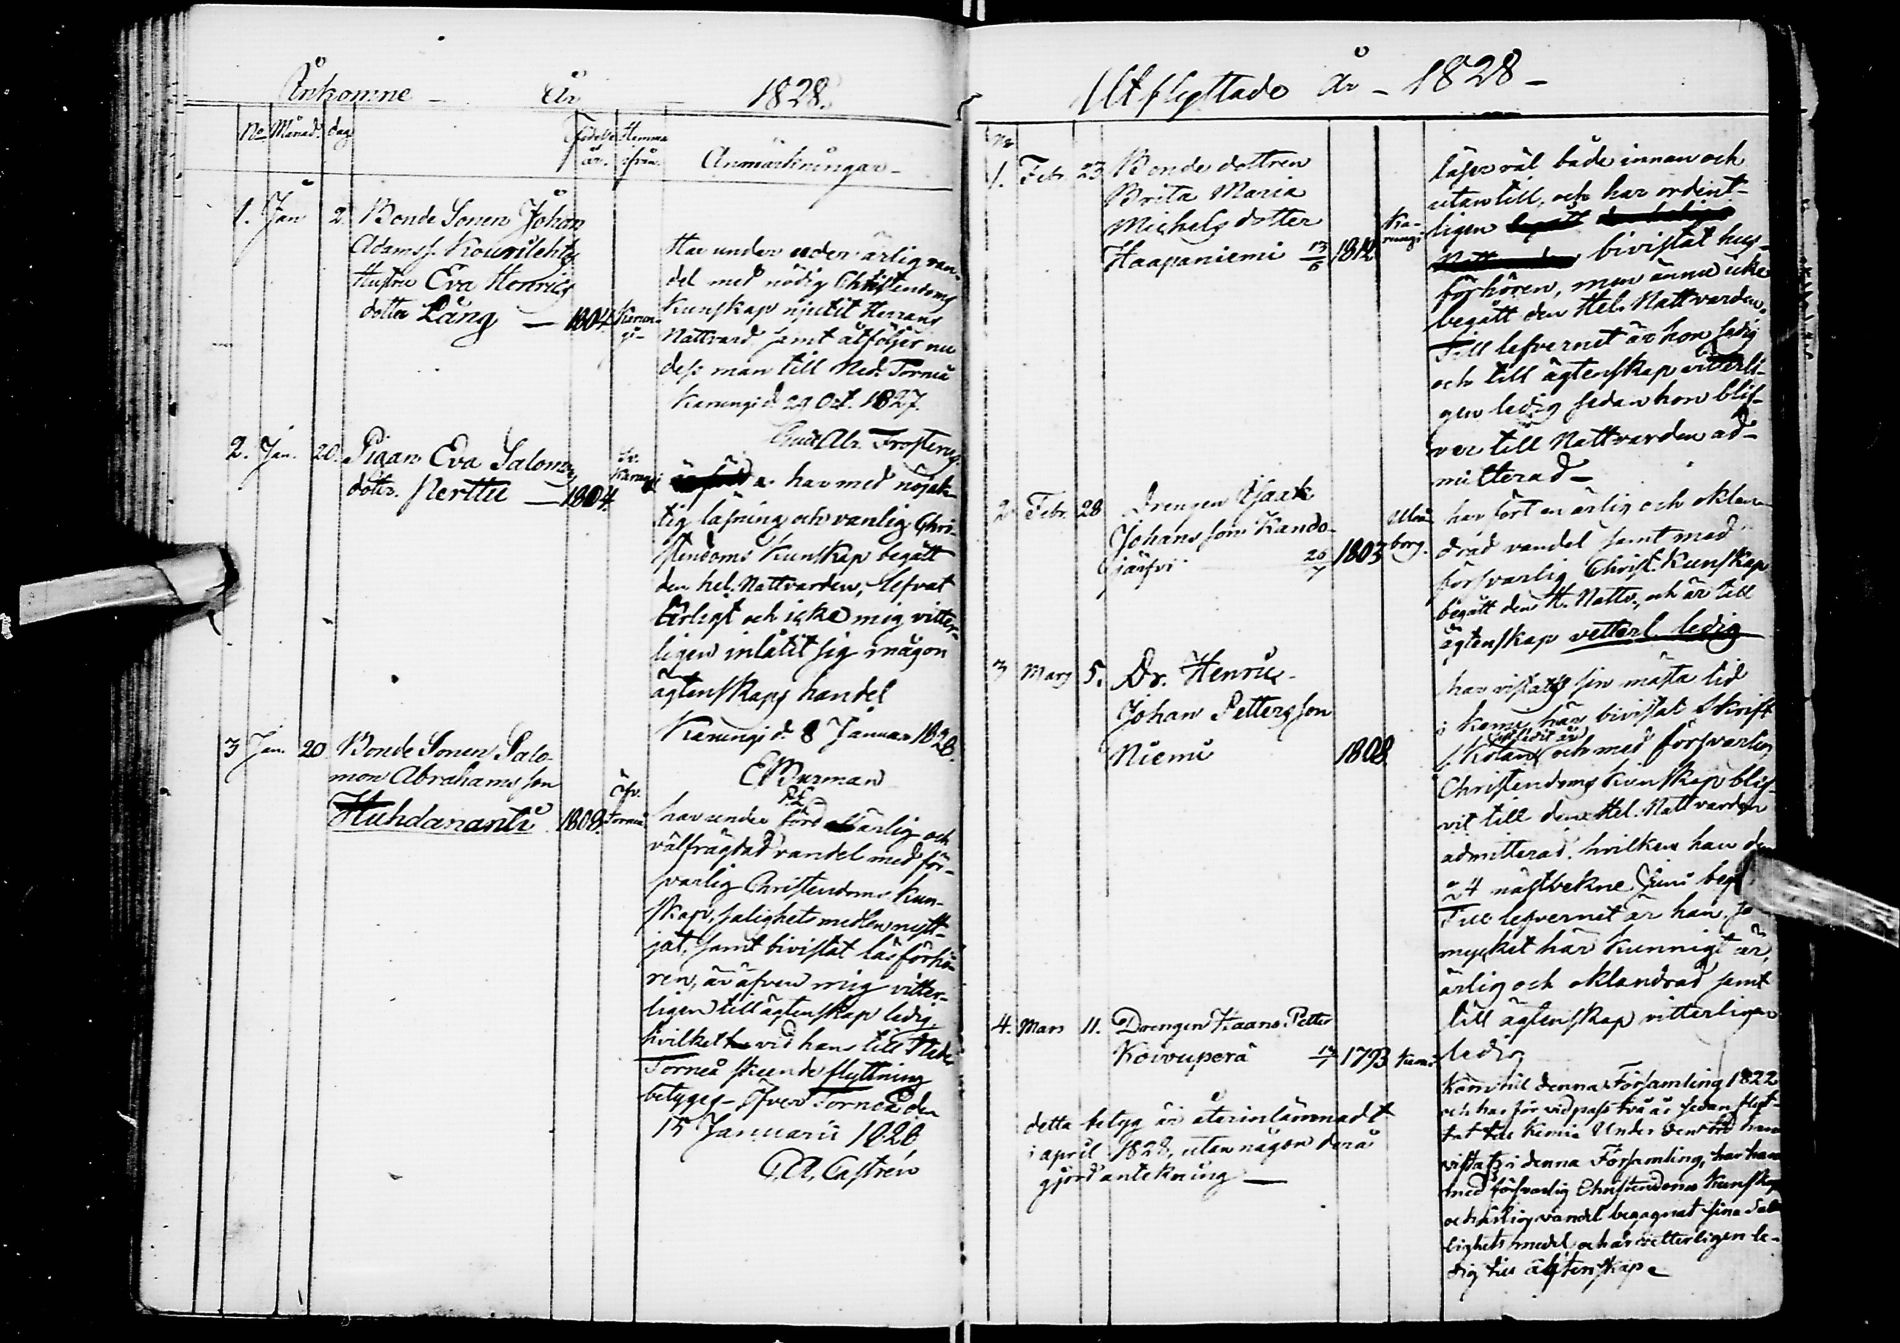 Ankomne – År 1828.
No Månad dag Födelse år. Hemma ifrån. Anmärkningar –
1. Jan 2. Bonde Sonen Johan
Adamss. Kourilehto
Hustru Eva Henrics
dotter Lång — 1804 Karun-
gi-
Har under en ärlig van-
del med nödig Christendoms
Kunskap njutit Herrans
Nattvard samt åtföljer nu
dess man till Ned. Torneå
Karungi d. 29 Oct. 1827.
Abr. Frosterus
2. Jan. 20. Pigan Eva Salomons
dotter. Perttu — 1804. Karungi
har med nöjak-
tig läsning och vanlig Chri-
stendoms Kunskap begått
den hel. Nattvarden, lefvat
ärligt och icke mig vitter-
ligen inlåtit sig i någon
ägtenskaps handel
Karungi d. 8 Januar 1828.
E Burman
3 Jan. 20 Bonde Sonen Salo-
mon Abrahamsson
Huhdanantti 1808. Öfv. Torneå
har under förd ärlig och
välfrägdad vandel med för-
svarlig Christendoms Kun-
skap, salighets medlen nytt-
jat, samt bivistat läsförhö-
ren, är äfven mig vitter-
ligen till ägtenskap ledig,
hvilket vid hans till Neder
Torneå skeende flyttning
betygas – Öfver Torneå den
15 Januarii 1828
Castrén
Utflyttade År – 1828 –
No
1. Febr. 23 Bonde dottren
Brita Maria
Michelsdotter
Haapaniemi 13/6 1812 Ka-
rungi
läser väl både innan och
utan till, och har ordent-
ligen bivistat hus-
förhören, men ännu icke
begått den Hel. Nattvarden.
Till lefvernet är hon sedig
och till ägtenskap vitterli-
gen ledig sedan hon blif-
ver till Nattvarden ad-
mitterad –
2 Febr. 28 Drengen Isaak
Johansson Kando-
järfvi 26/7 1803 Uleå
borg.
har fört en ärlig och oklan-
drad vandel samt med
försvarlig Christ. Kunskap
begått den H. Nattv. och är till
ägtenskap vetterl. ledig
3 Mars 5. Dr. Henric
Johan Pettersson
Niemi 1808
har vistats sin mästa tid
i Kemi, här bivistat Skrift
och med försvarlig
Christendoms Kunskap blif-
vit till den Hel. Nattvarden
admitterad, hvilken han
4 nästvekne Juni
Till lefvernet är han, så
mycket här kunnigt är,
ärlig och oklandrad samt
till ägtenskap vitterligen
ledig
4. Mars 11. Drengen Haans Petter
Koivuperä 1793 Kemi
detta betyg är återinlämnadt
i april 1828, utan någon derå
gjord antekning —
Kom till denna Församling 1822
och har för vid pass två år sedan flyt-
tat till Kemi. Under den tid han
vistats i denna Församling, har han
med försvarlig Christendoms Kunskap
och ärlig vandel begagnat sina Sa-
lighets medel, och är vetterligen le-
dig till äktenskap.